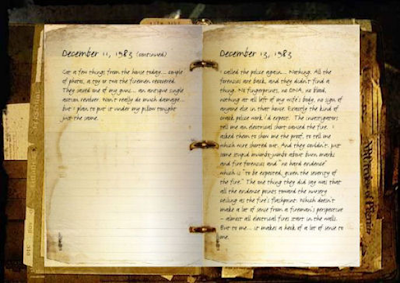 December 11, 1983 (continued)
Got a few things from the house today... couple
of photos, a toy or two the firemen recovered.
They saved one of my guns... an antique single
action revolver. Won't really do much damage...
but I plan to put it under my pillow tonight
just the same.
December 13, 1983
I called the police again... Nothing. All the
forensics are back, and they didn't find a
thing. No fingerprints, no DNA, no blood,
nothing at all left of my wife's body, no sign of
anyone else in that house. Exactly the kind of
crack police work I'd expect. The investigators
tell me an electrical short caused the fire. I
asked them to show me the proof, to tell me
which wire shorted out. And they couldn't. Just
some stupid mumbo-jumbo about burn marks
and fire forensics and "no hard evidence"
which is "to be expected, given the severity of
the fire." The one thing they did say was that
all the evidence points toward the nursery
ceiling as the fire's flashpoint. Which doesn't
make a lot of sense from a fireman's perspective
- almost all electrical fires start in the walls.
But to me... it makes a heck of a lot of sense to
me.